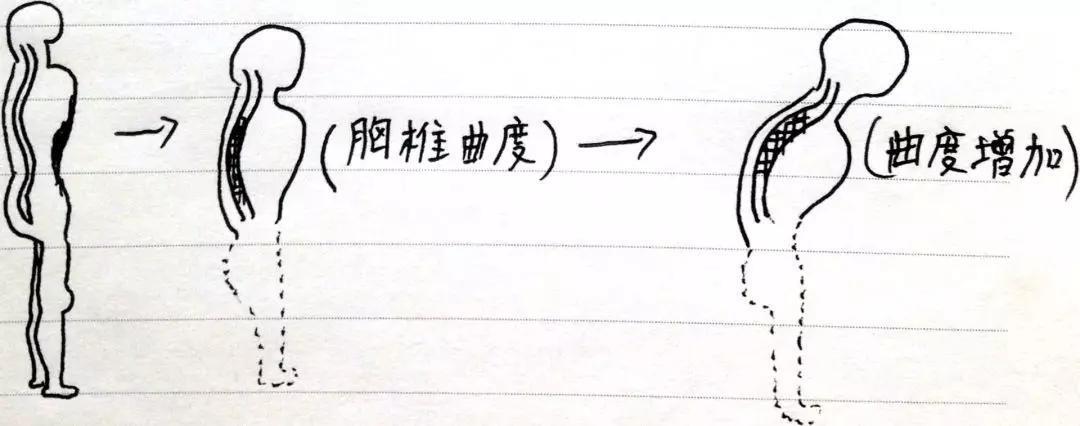 (胸椎曲度)
(曲度增加)